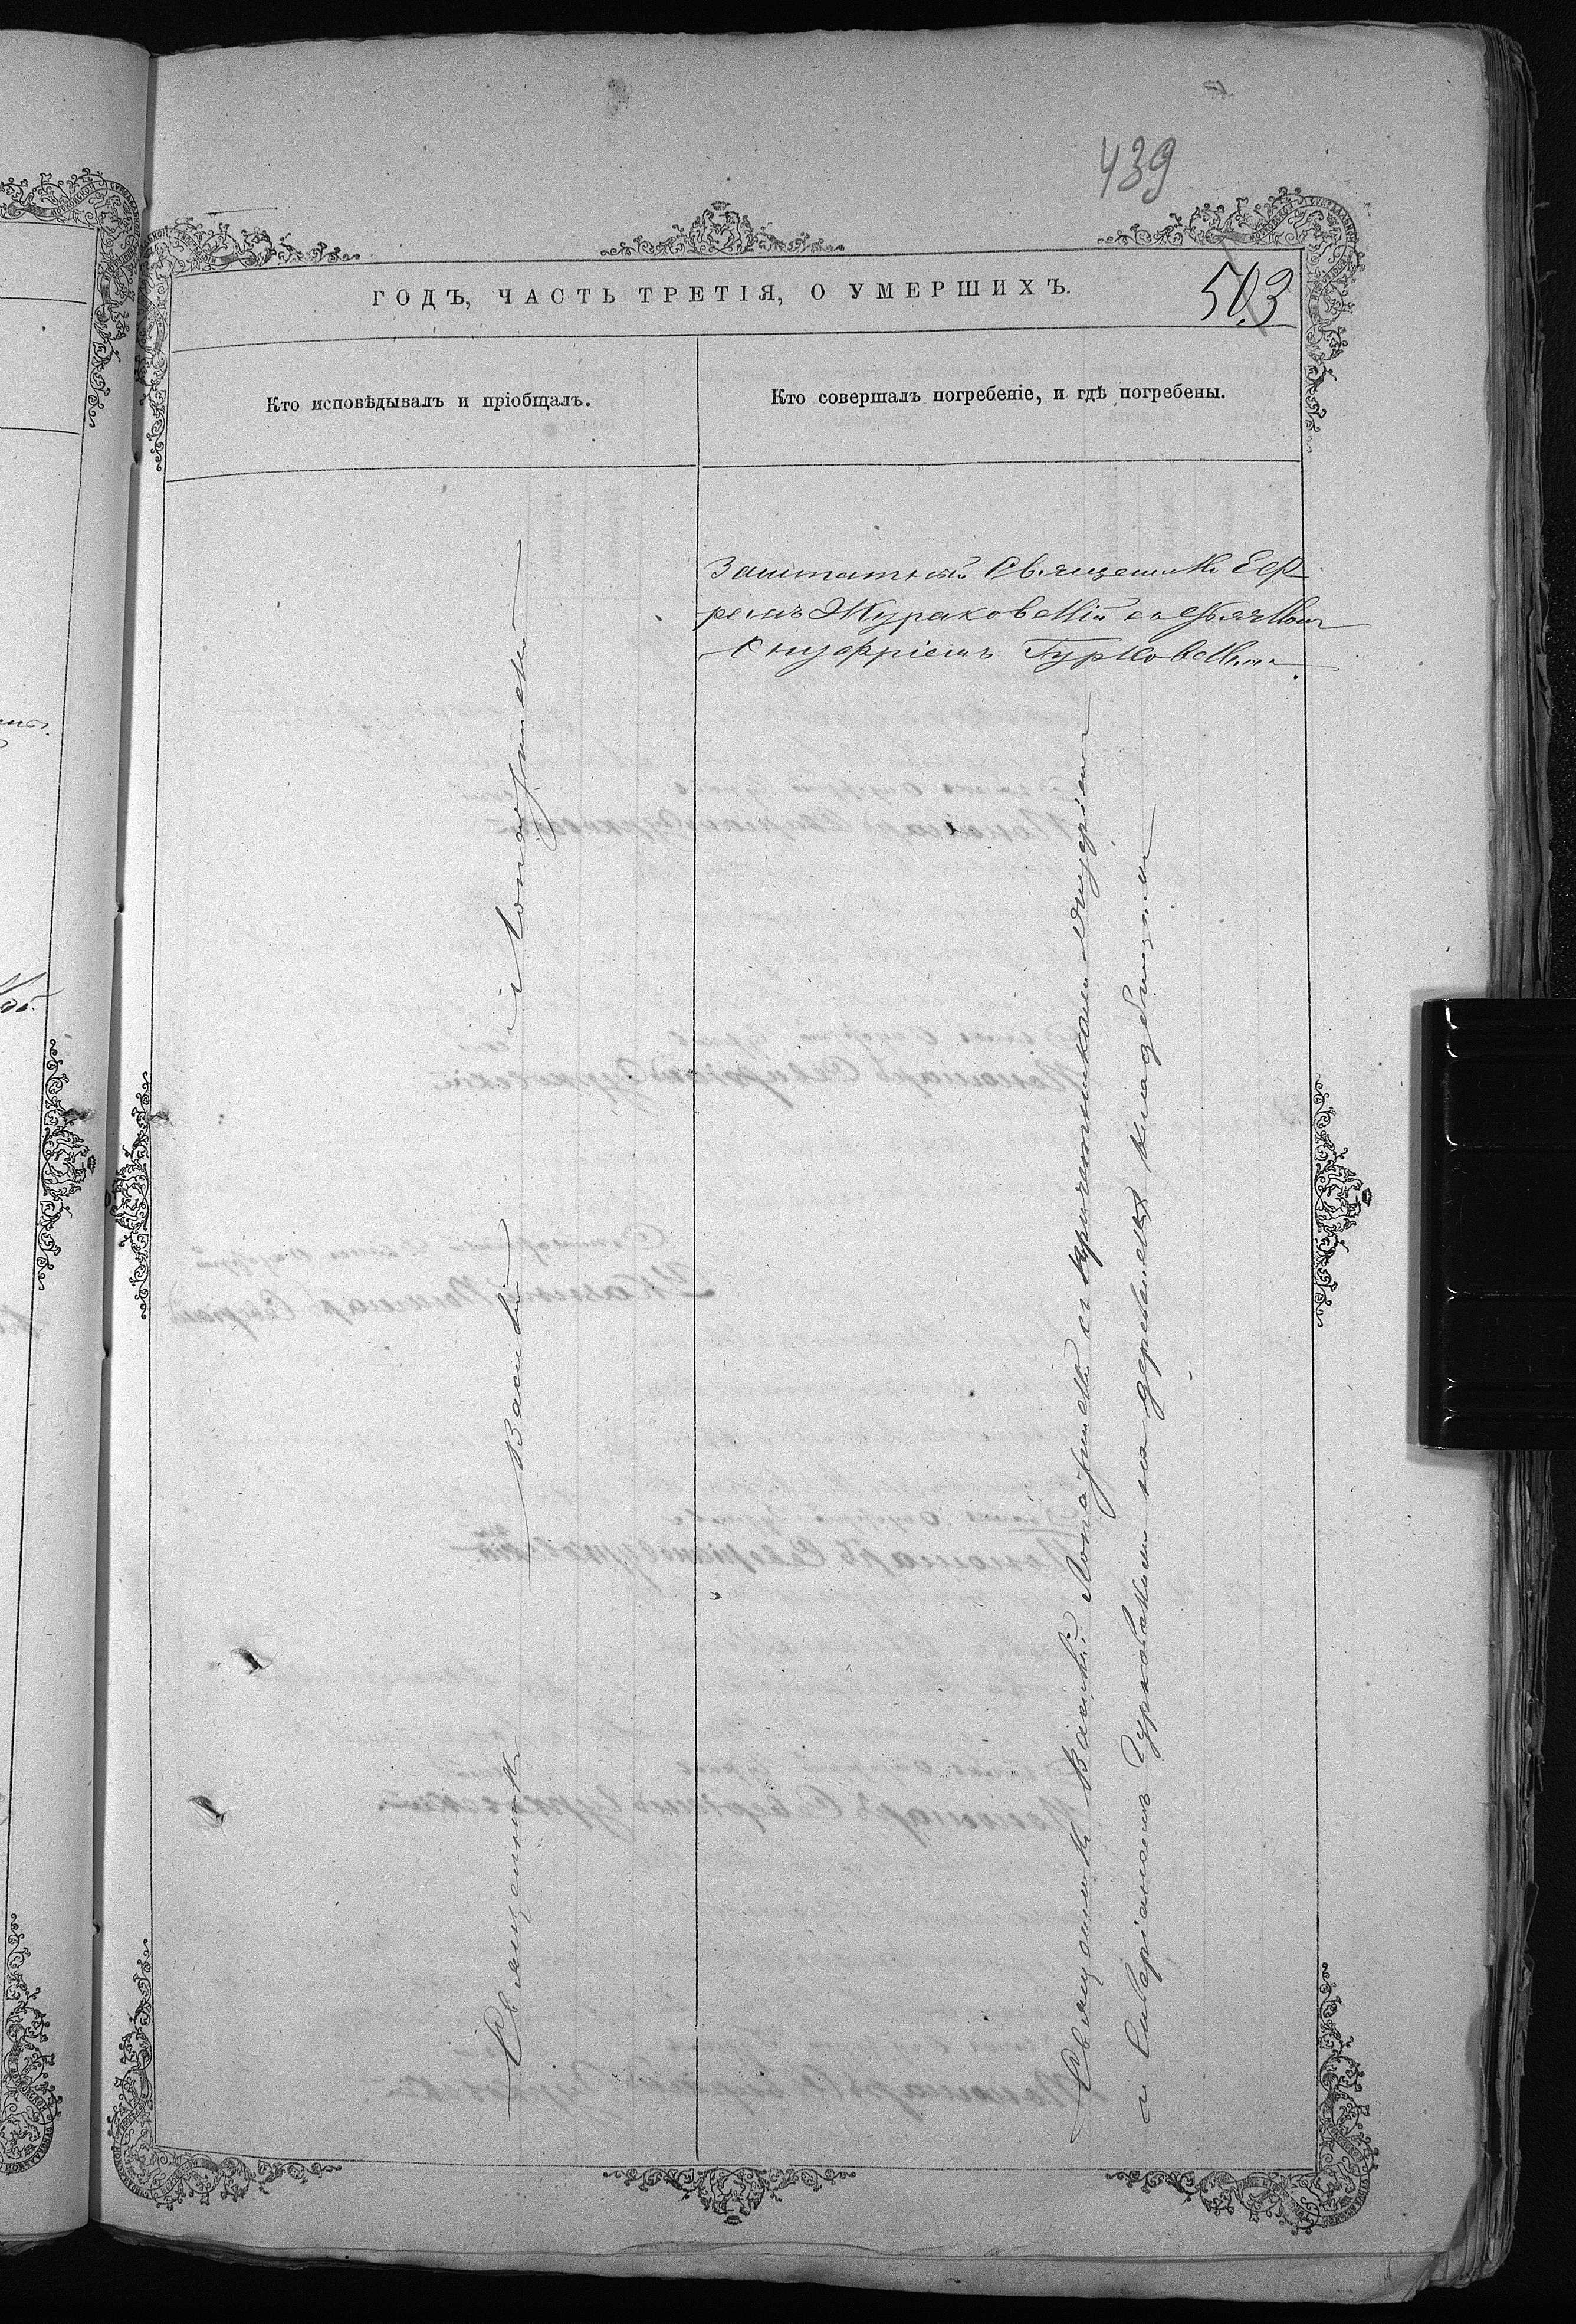 439
503
ГОДЪ, ЧАСТЬ ТРЕТІЯ, О УМЕРШИХЪ.
Кто исповѣдывалъ и пріобщалъ.
Кто совершалъ погребеніе, и гдѣ погребены.
Священникъ Василій Лопатинскій
Заштатный Священникъ Еф
ремъ Жураковскій съ дьячкомъ
Онуфріемъ Гурковскимъ.
Священникъ Василій Лопатинскій съ причетниками Онуфріемъ
и Северіаномъ Гурковскими на деревенскихъ кладбищахъ